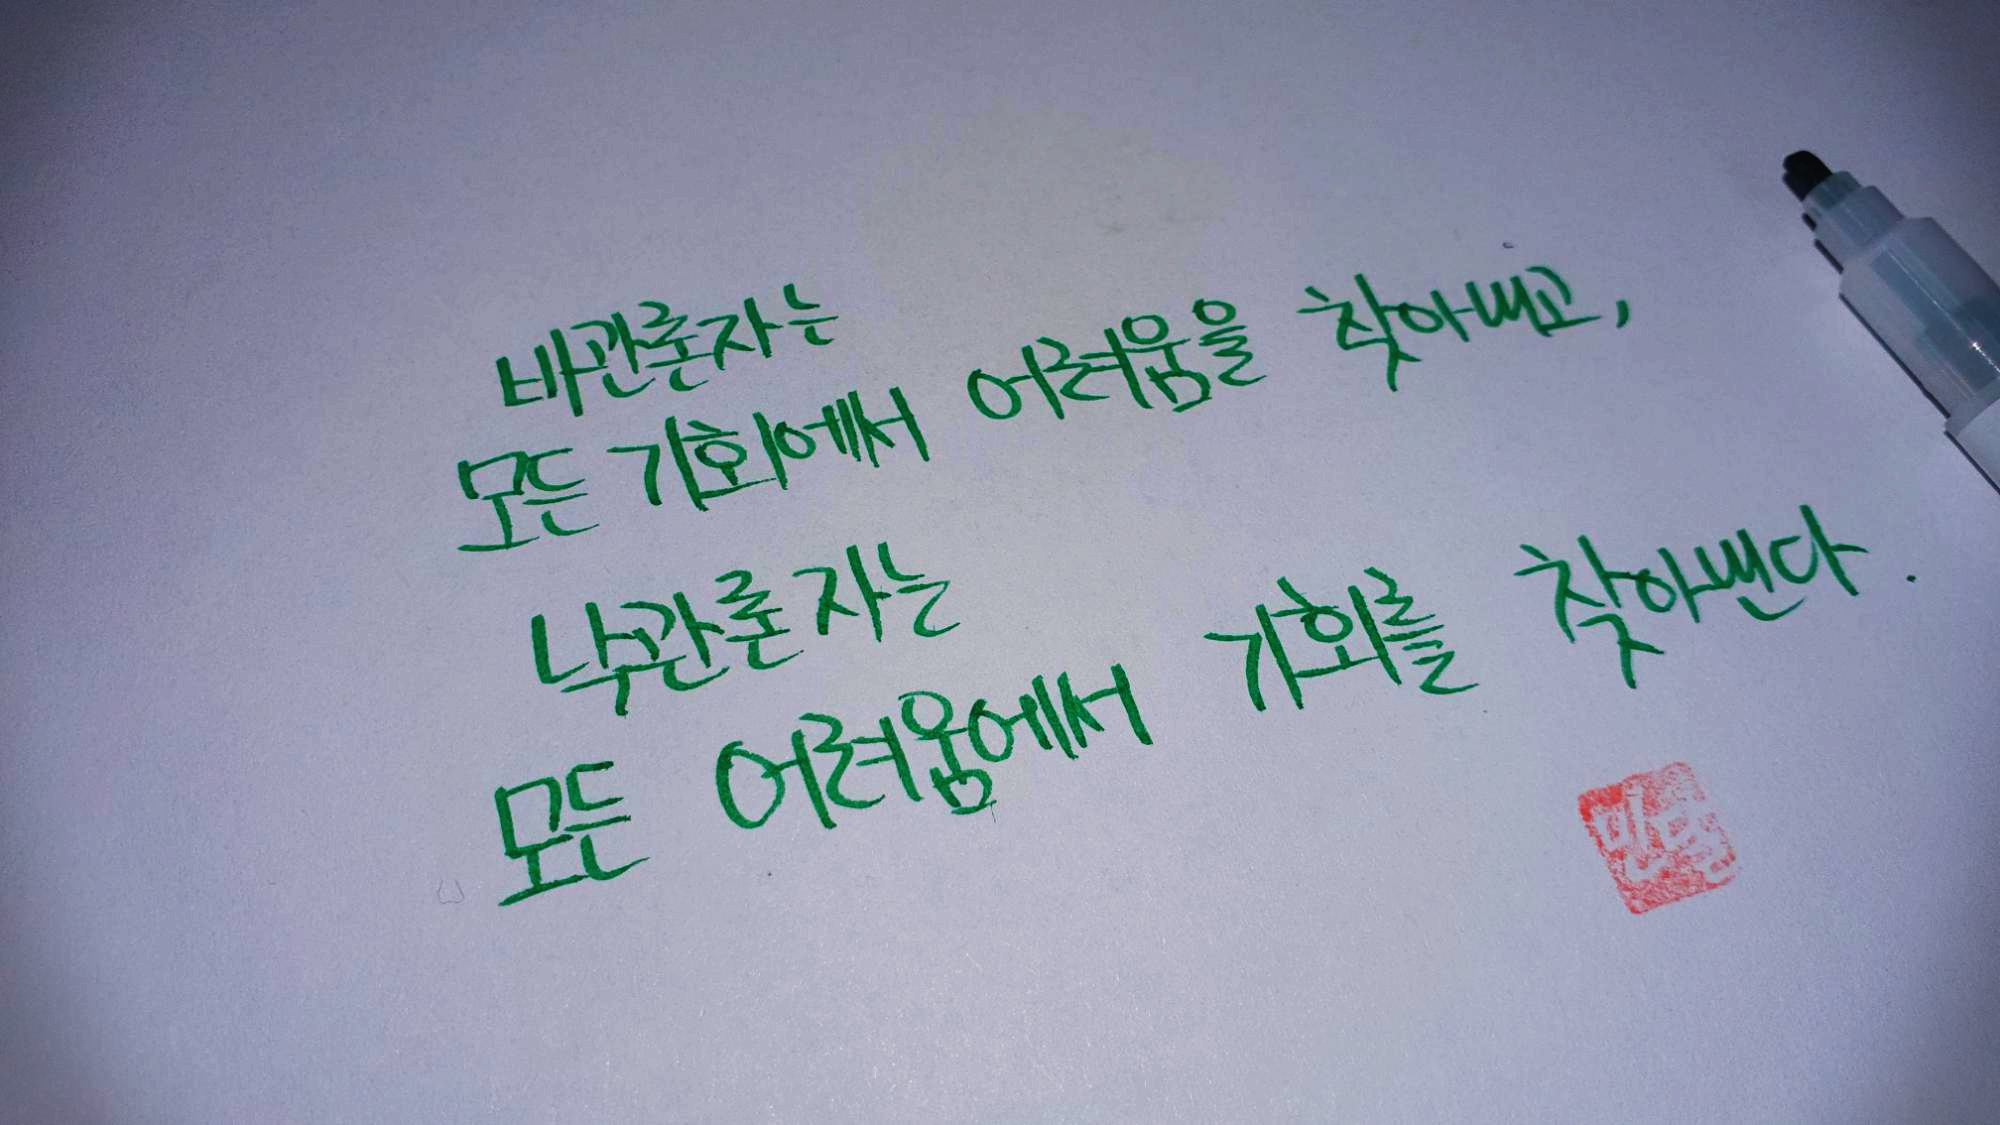 비관론자는
모든 기회에서 어려움을 찾아내고,
낙관론자는
모든 어려움에서 기회를 찾아낸다.